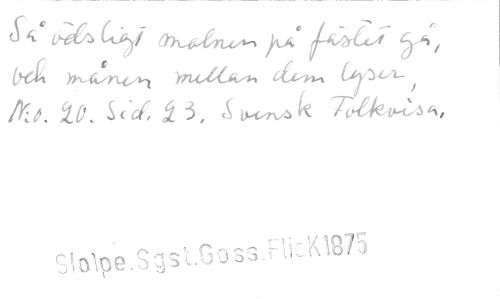 Så ödsligt molnen på fästet gå,
och månen mellan dem lyser,
N:o. 20. Sid. 23. Svensk Folkvisa.
Stolpe.Sgst.Goss.FlicK1875